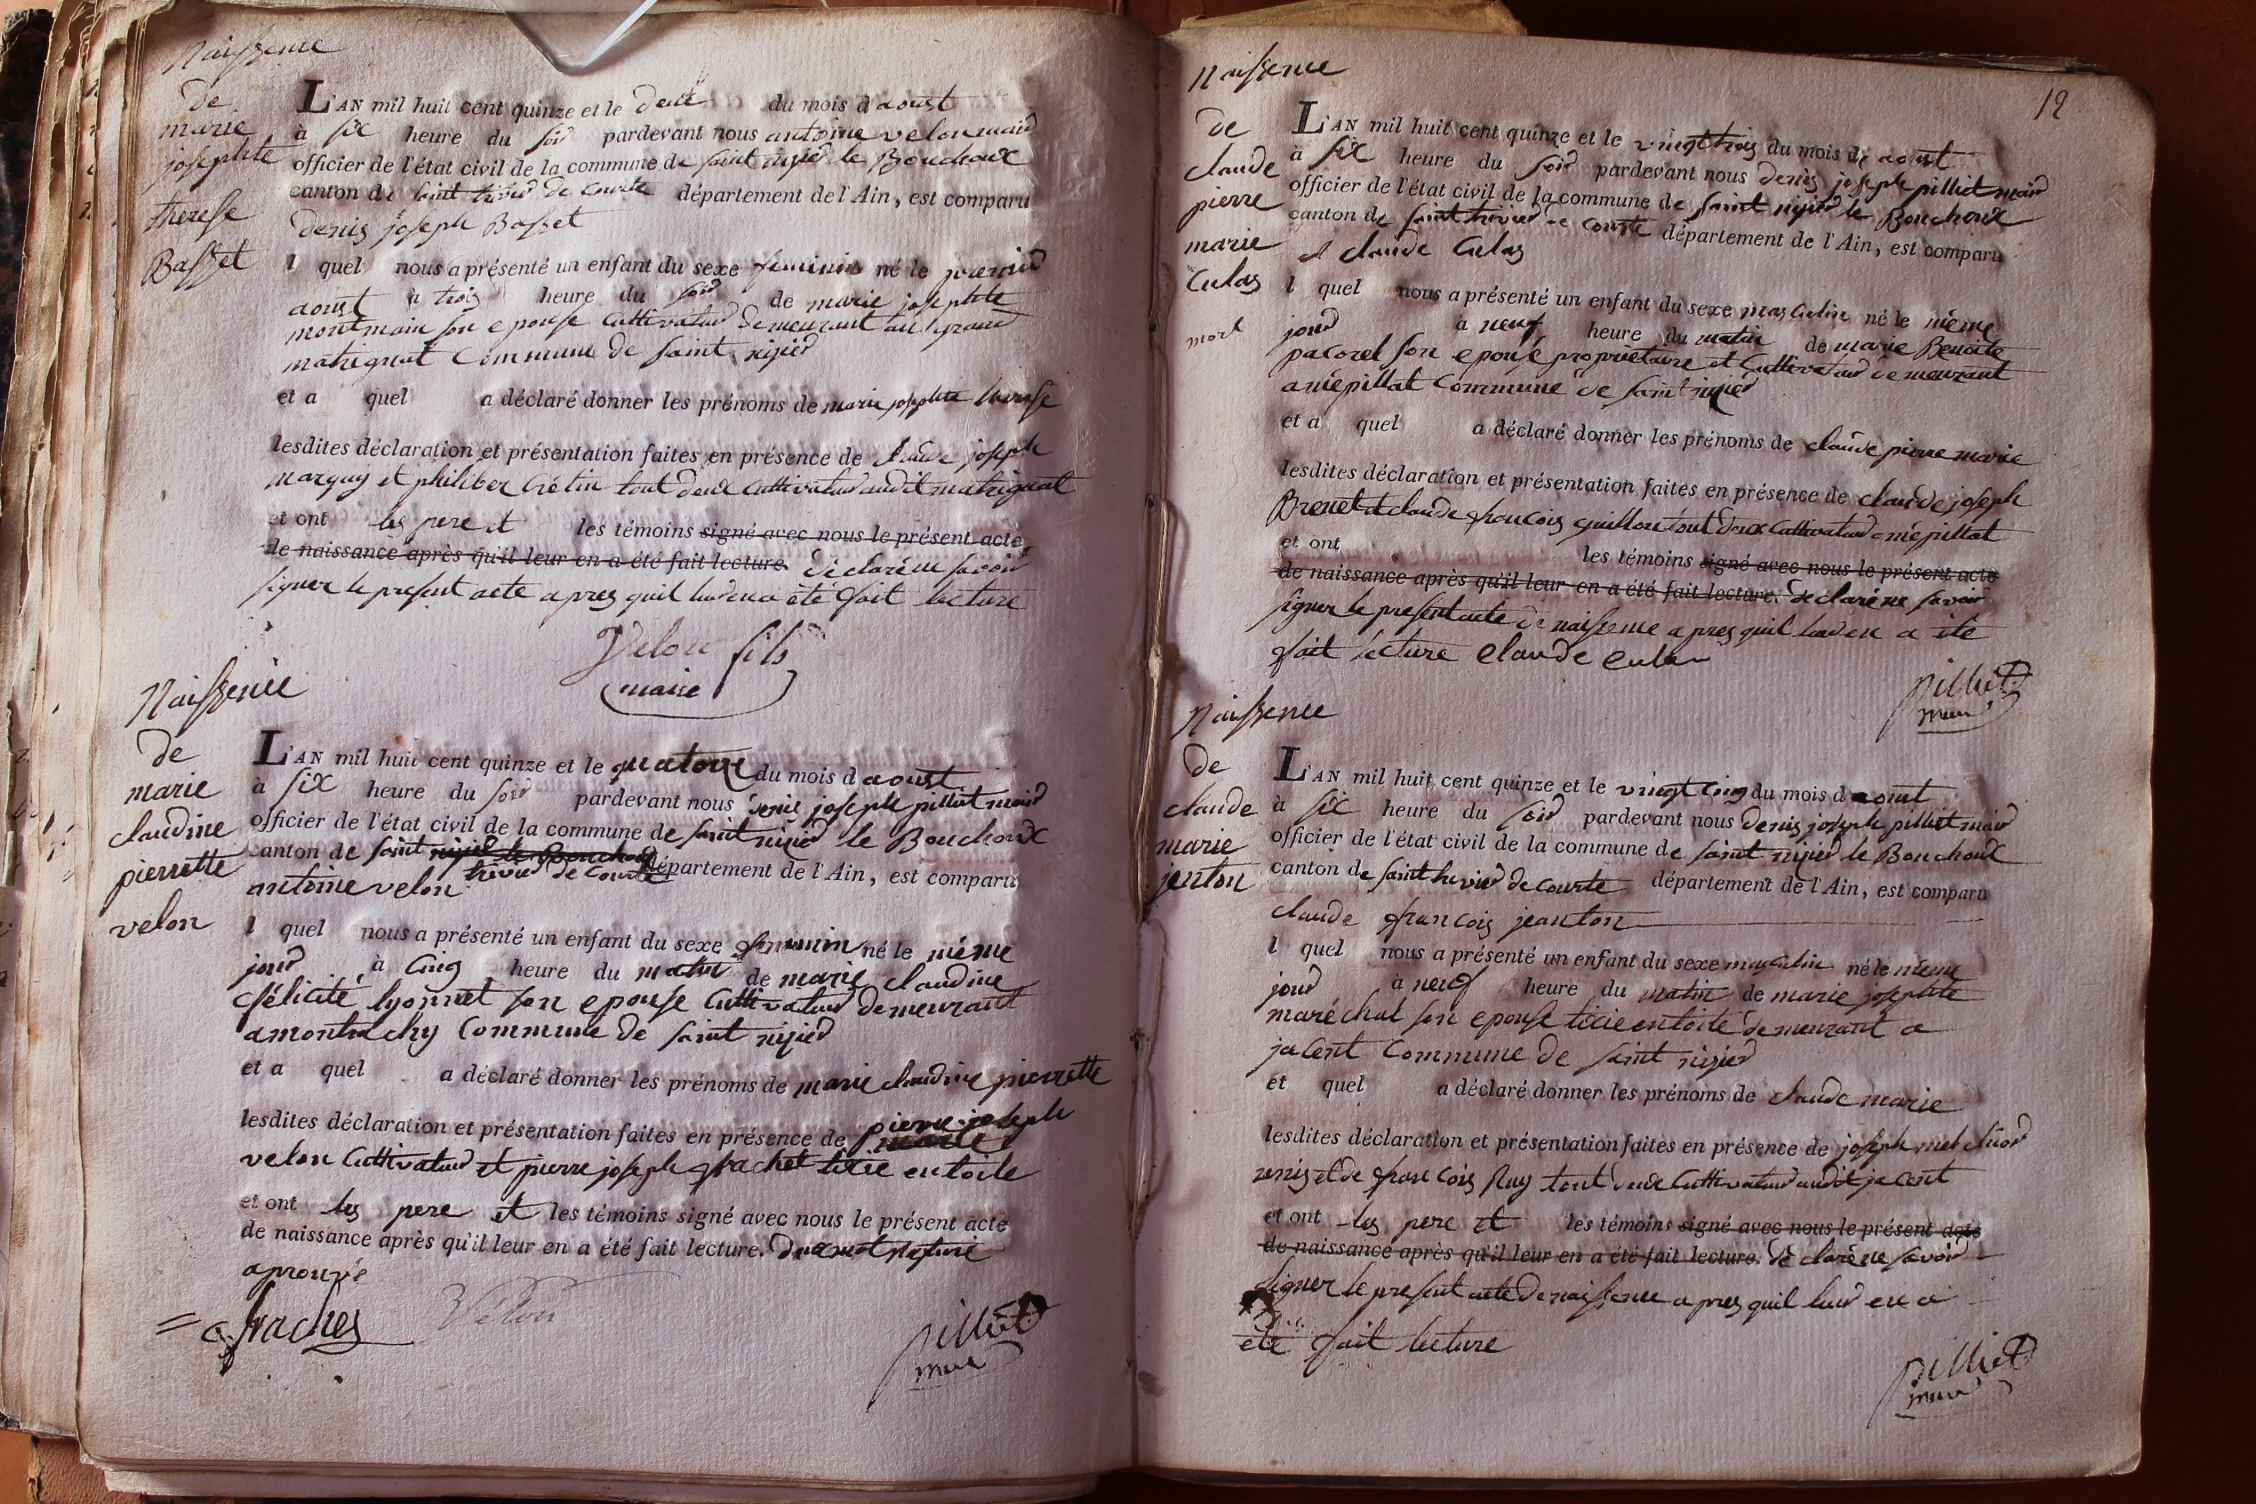 Naissence
de
marie
josephte
therese
Basset
L'AN mil huit cent quinze et le deux du mois d aoust
à six heure du soir pardevant nous antoine velon maire
officier de l'état civil de la commune de saint nizier le Bouchoux
canton de saint trivier de courte département de l'Ain, est comparu
denis joseph Basset
l quel nous a présenté un enfant du sexe feminin né le premier
aoust à trois heure du soir de marie josephte
montmain son epouse cultivateur demeurant au grand
matignat commune de saint nizier
et a quel a déclaré donner les prénoms de marie josephte therese
lesdites déclaration et présentation faites en présence de claude joseph
marguy et philiber Crétin tout deux cultivateur audit matignat
et ont les pere et les témoins signé avec nous le présent acte
de naissance après qu'il leur en a été fait lecture. déclaré ne savoir
signer le present acte apres quil leur en a été fait lecture
Velon fils
maire
Naissence
de
marie
claudine
pierrette
velon
L'AN mil huit cent quinze et le quatorze du mois d aoust
à six heure du soir pardevant nous denis joseph pilliat maire
officier de l'état civil de la commune de saint nizier le Bouchoux
canton de saint nizier le Bouchoux trivier de courte département de l'Ain, est comparu
antoine velon
l quel nous a présenté un enfant du sexe feminin né le même
jour à cinq heure du matin de marie claudine
félicité lyonnet son epouse cultivateur demeurant
a montrachy commune de saint nizier
et a quel a déclaré donner les prénoms de marie claudine pierrette
lesdites déclaration et présentation faites en présence de pierre joseph
marie
velon cultivateur et pierre joseph frachet titie en toile
et ont les pere et les témoins signé avec nous le présent acte
de naissance après qu'il leur en a été fait lecture.
aprouvé
Velon
pilliat
maire
12
Naissence
de
claude
pierre
marie
Culas
mort
L'AN mil huit cent quinze et le vingt trois du mois d aoust
à six heure du soir pardevant nous denis joseph pilliat maire
officier de l'état civil de la commune de saint nizier le Bouchoux
canton de saint trivier de courte département de l'Ain, est comparu
claude Culas
l quel nous a présenté un enfant du sexe masculin né le même
jour a neuf heure du matin de marie Benoite
pacorel son epouse propriétaire et cultivateur demeurant
a mépillat commune de saint nizier
et a quel a déclaré donner les prénoms de claude pierre marie
lesdites déclaration et présentation faites en présence de claude joseph
Brenet et claude francois guillon tout deux cultivateur a mépillat
et ont les témoins signé avec nous le présent acte
de naissance après qu'il leur en a été fait lecture. declaré ne savoir
signer le present acte de naissence apres quil leur en a été
fait lecture claude culas
pilliat
maire
Naissence
de
claude
marie
jenton
L'AN mil huit cent quinze et le vingt cinq du mois d aoust
à six heure du soir pardevant nous denis joseph pilliat maire
officier de l'état civil de la commune de saint nizier le Bouchoux
canton de saint trivier de courte département de l'Ain, est comparu
claude francois jeanton
l quel nous a présenté un enfant du sexe masculin né le même
jour à neuf heure du matin de marie josephte
maréchal son epouse titie en toile demeurant a
jacent commune de saint nizier
et quel a déclaré donner les prénoms de claude marie
lesdites déclaration et présentation faites en présence de joseph melchior
et de francois Ruy tout deux cultivateur audit jacent
et ont les pere et les témoins signé avec nous le présent acte
de naissance après qu'il leur en a été fait lecture. declaré ne savoir
signer le present acte de naissence apres quil leur en a
été fait lecture
pilliat
maire